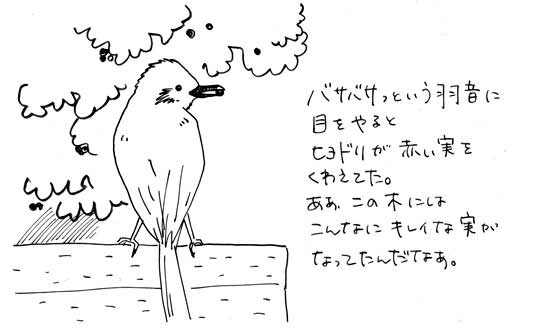 バサバサっという羽音に
目をやると
ヒヨドリが赤い実を
くわえてた。
ああ、この木には
こんなにキレイな実が
なってたんだなあ。